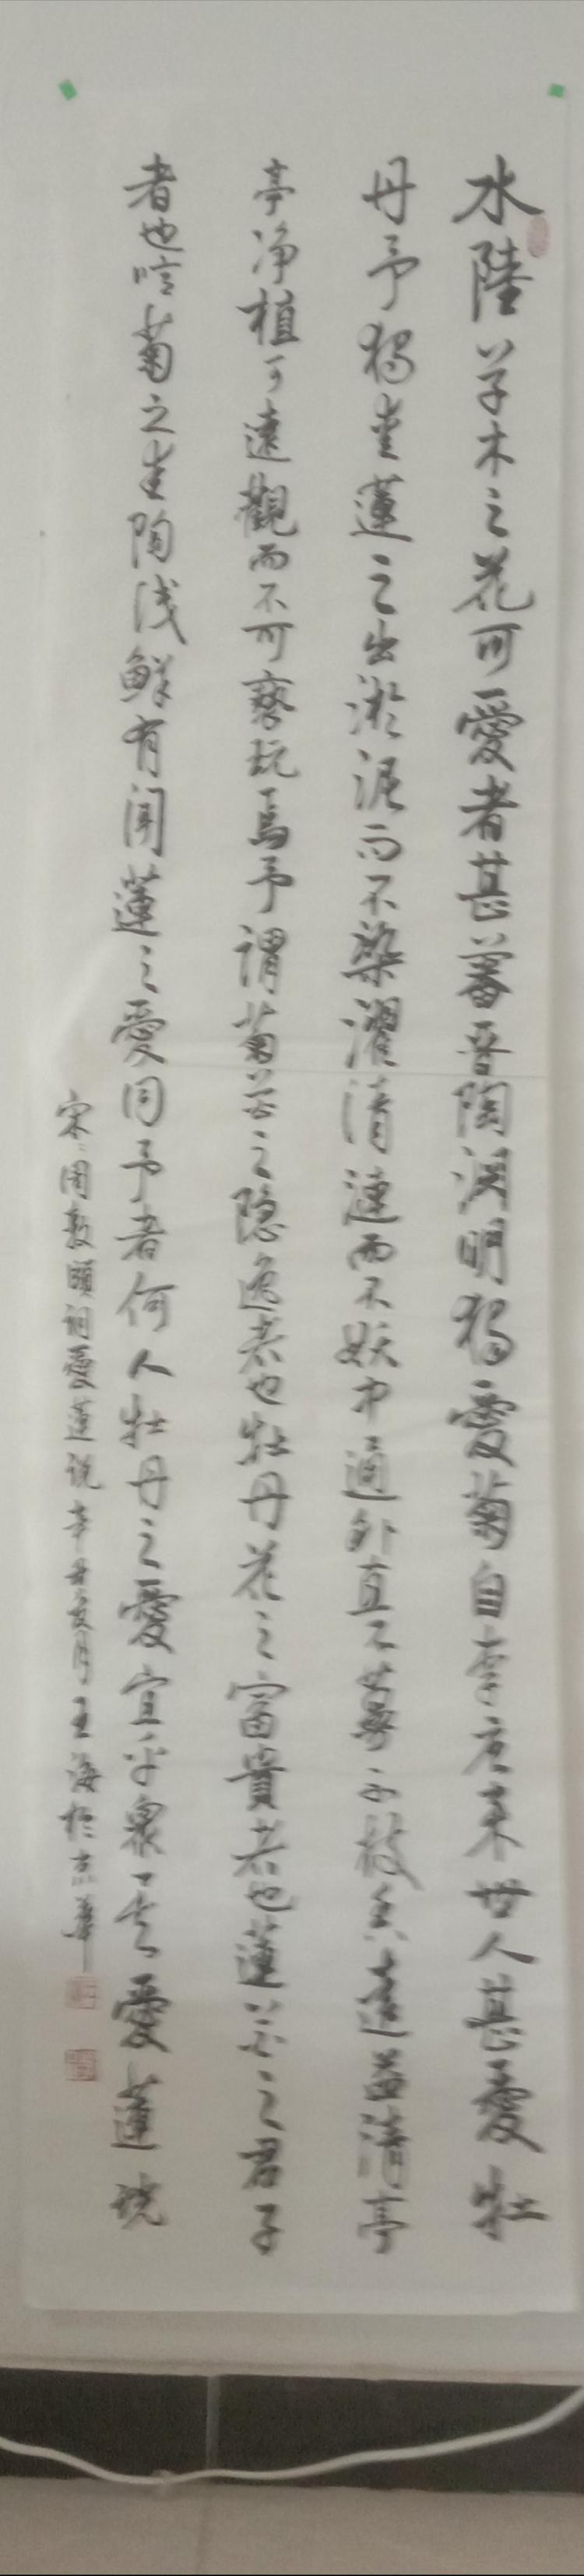 水陸草木之花可愛者甚蕃晋陶淵明獨愛菊自李唐来世人甚愛牡
丹予獨愛蓮之出淤泥而不染濯清漣而不妖中通外直不蔓不枝香遠益清亭
亭净植可遠觀而不可褻玩焉予謂菊花之隐逸者也牡丹花之富貴者也蓮花之君子
者也噫菊之愛陶後鮮有聞蓮之愛同予者何人牡丹之愛宜乎衆矣愛蓮説
宋周敦頤詞愛蓮説辛丑夏月王海於京華